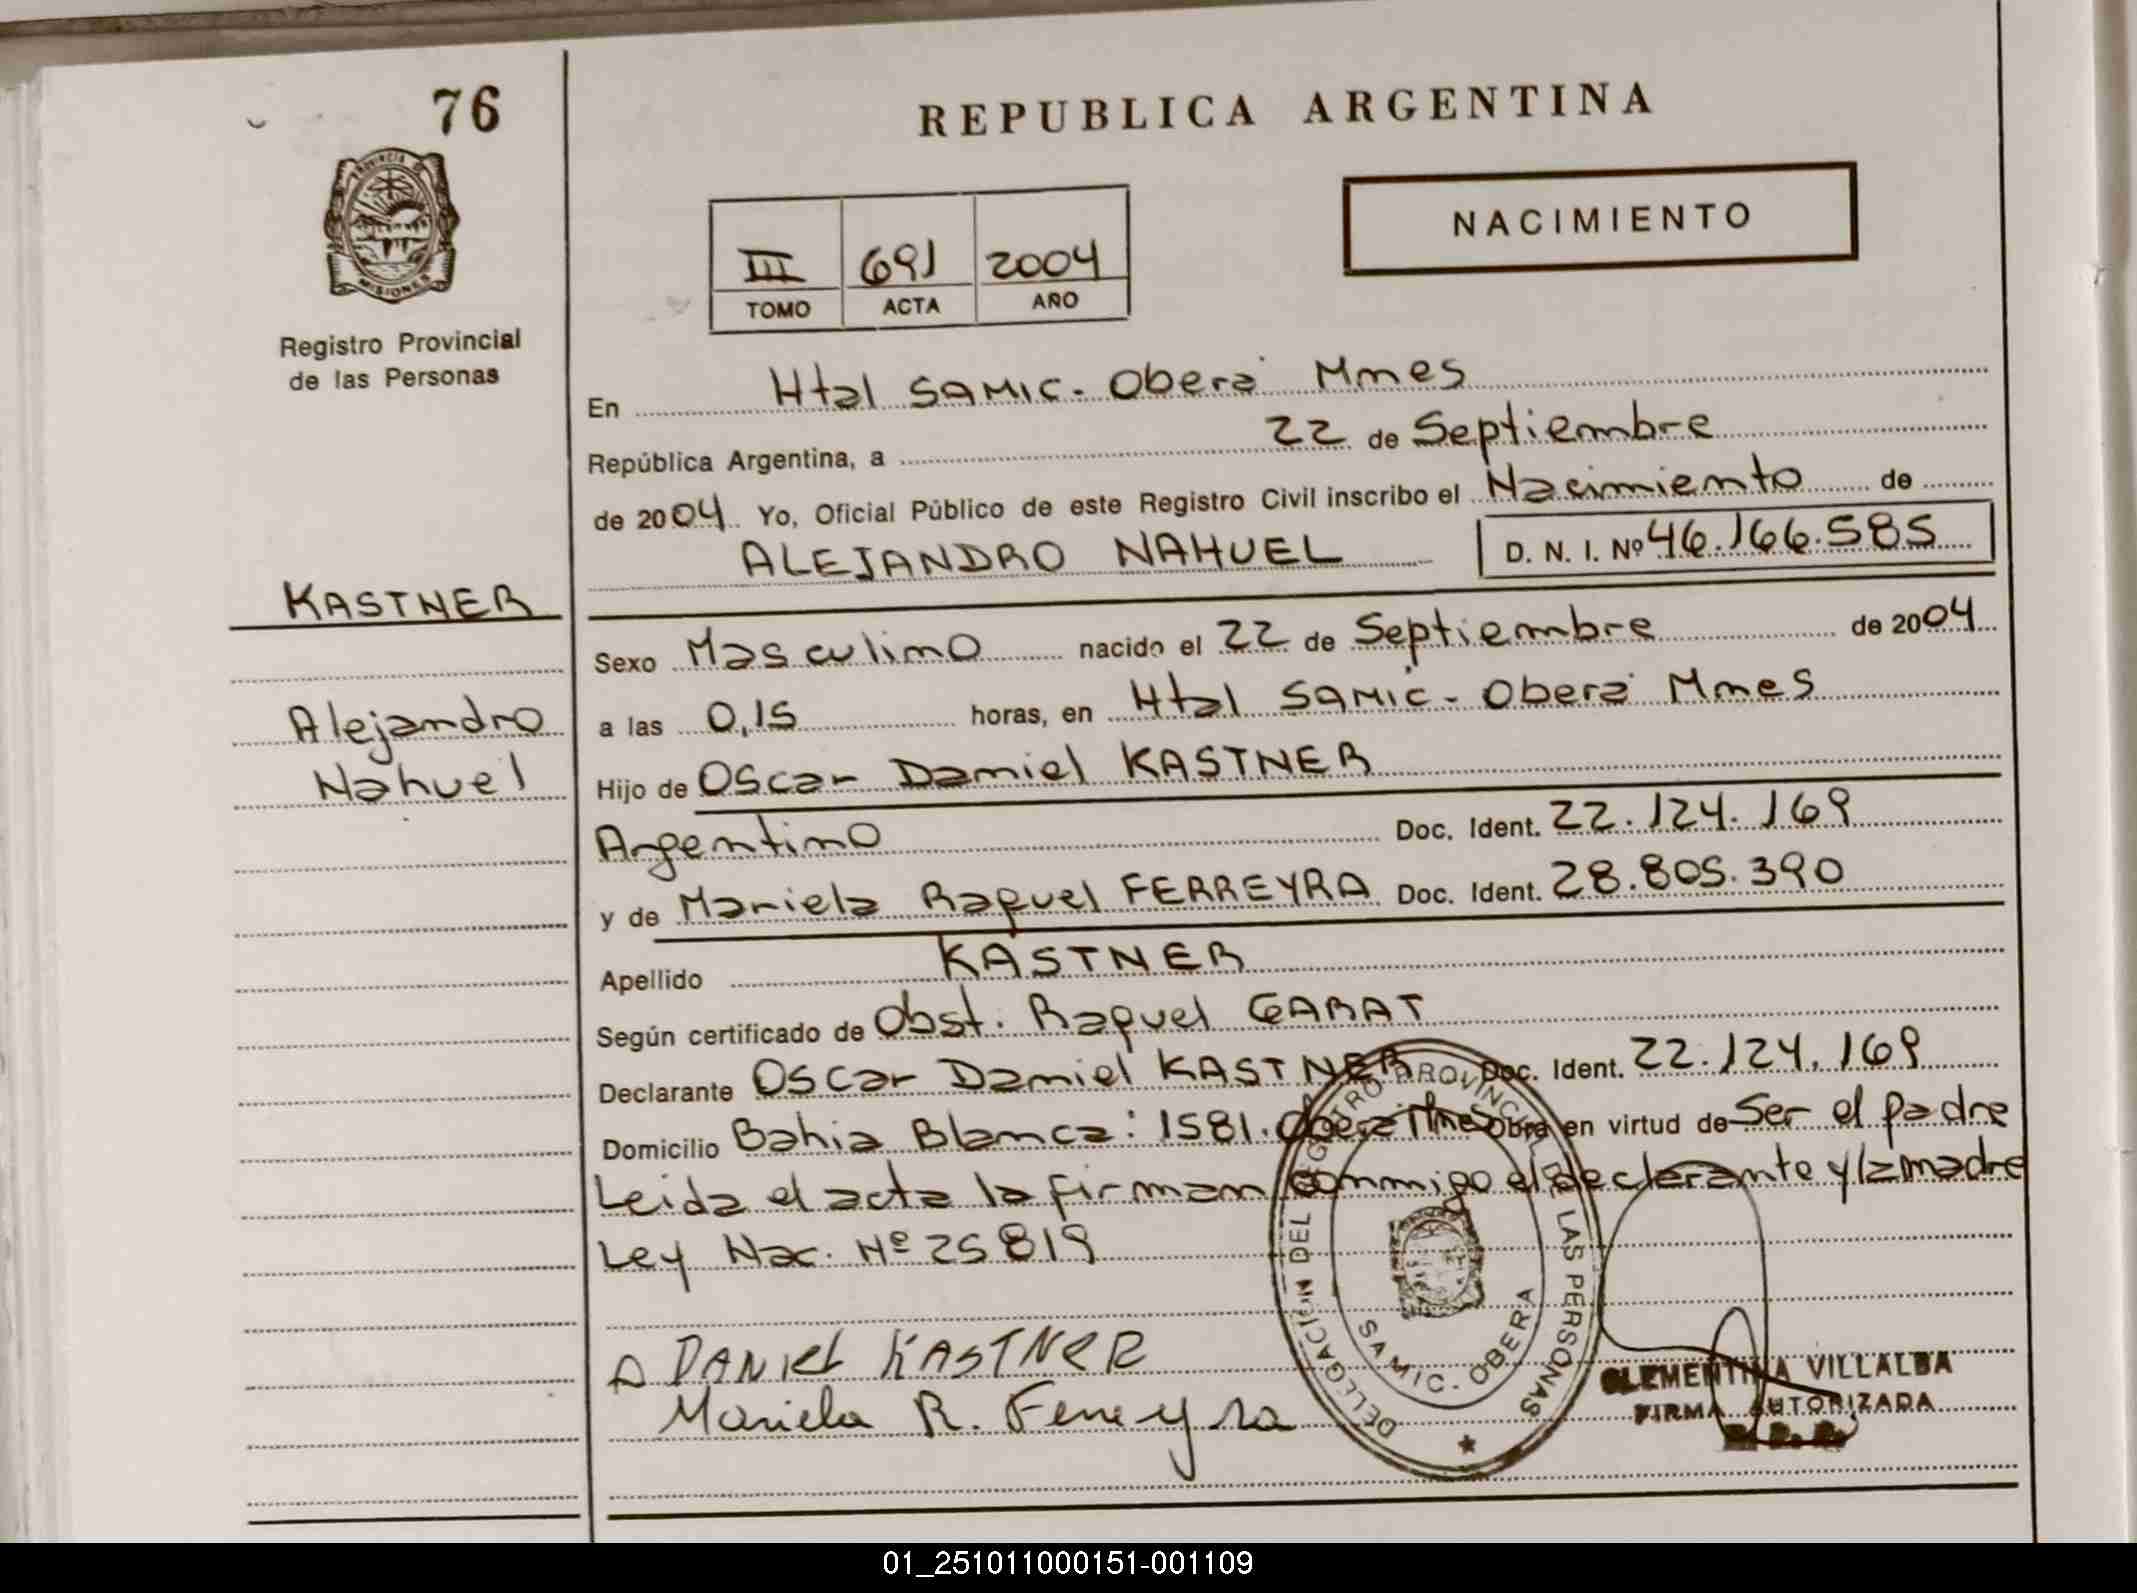 76
REPUBLICA ARGENTINA
NACIMIENTO
III 691 2004
TOMO ACTA AÑO
PROVINCIA DE MISIONES
Registro Provincial
de las Personas
En Htal SAMIC. Oberá Mnes
República Argentina, a 22 de Septiembre
de 2004 Yo, Oficial Público de este Registro Civil inscribo el Nacimiento de
ALEJANDRO NAHUEL D. N. I. Nº 46.166.585
KASTNER
Alejandro
Nahuel
Sexo Masculino nacido el 22 de Septiembre de 2004
a las 0,15 horas, en Htal SAMIC - Oberá Mnes
Hijo de Oscar Daniel KASTNER
Argentino Doc. Ident. 22.124.169
y de Mariela Raquel FERREYRA Doc. Ident. 28.805.390
Apellido KASTNER
Según certificado de Obst. Raquel GARAT
Declarante Oscar Daniel KASTNER Doc. Ident. 22.124.169
Domicilio Bahia Blanca: 1581. Oberá Mnes Obra en virtud de Ser el padre
Leida el acta la firman conmigo el declarante y la madre
Ley Nac. Nº 25819
DANIEL KASTNER
Mariela R. Ferreyra
DELEGACION DEL REGISTRO PROVINCIAL DE LAS PERSONAS
SAMIC - OBERA
CLEMENTINA VILLALBA
FIRMA AUTORIZADA
01_251011000151-001109